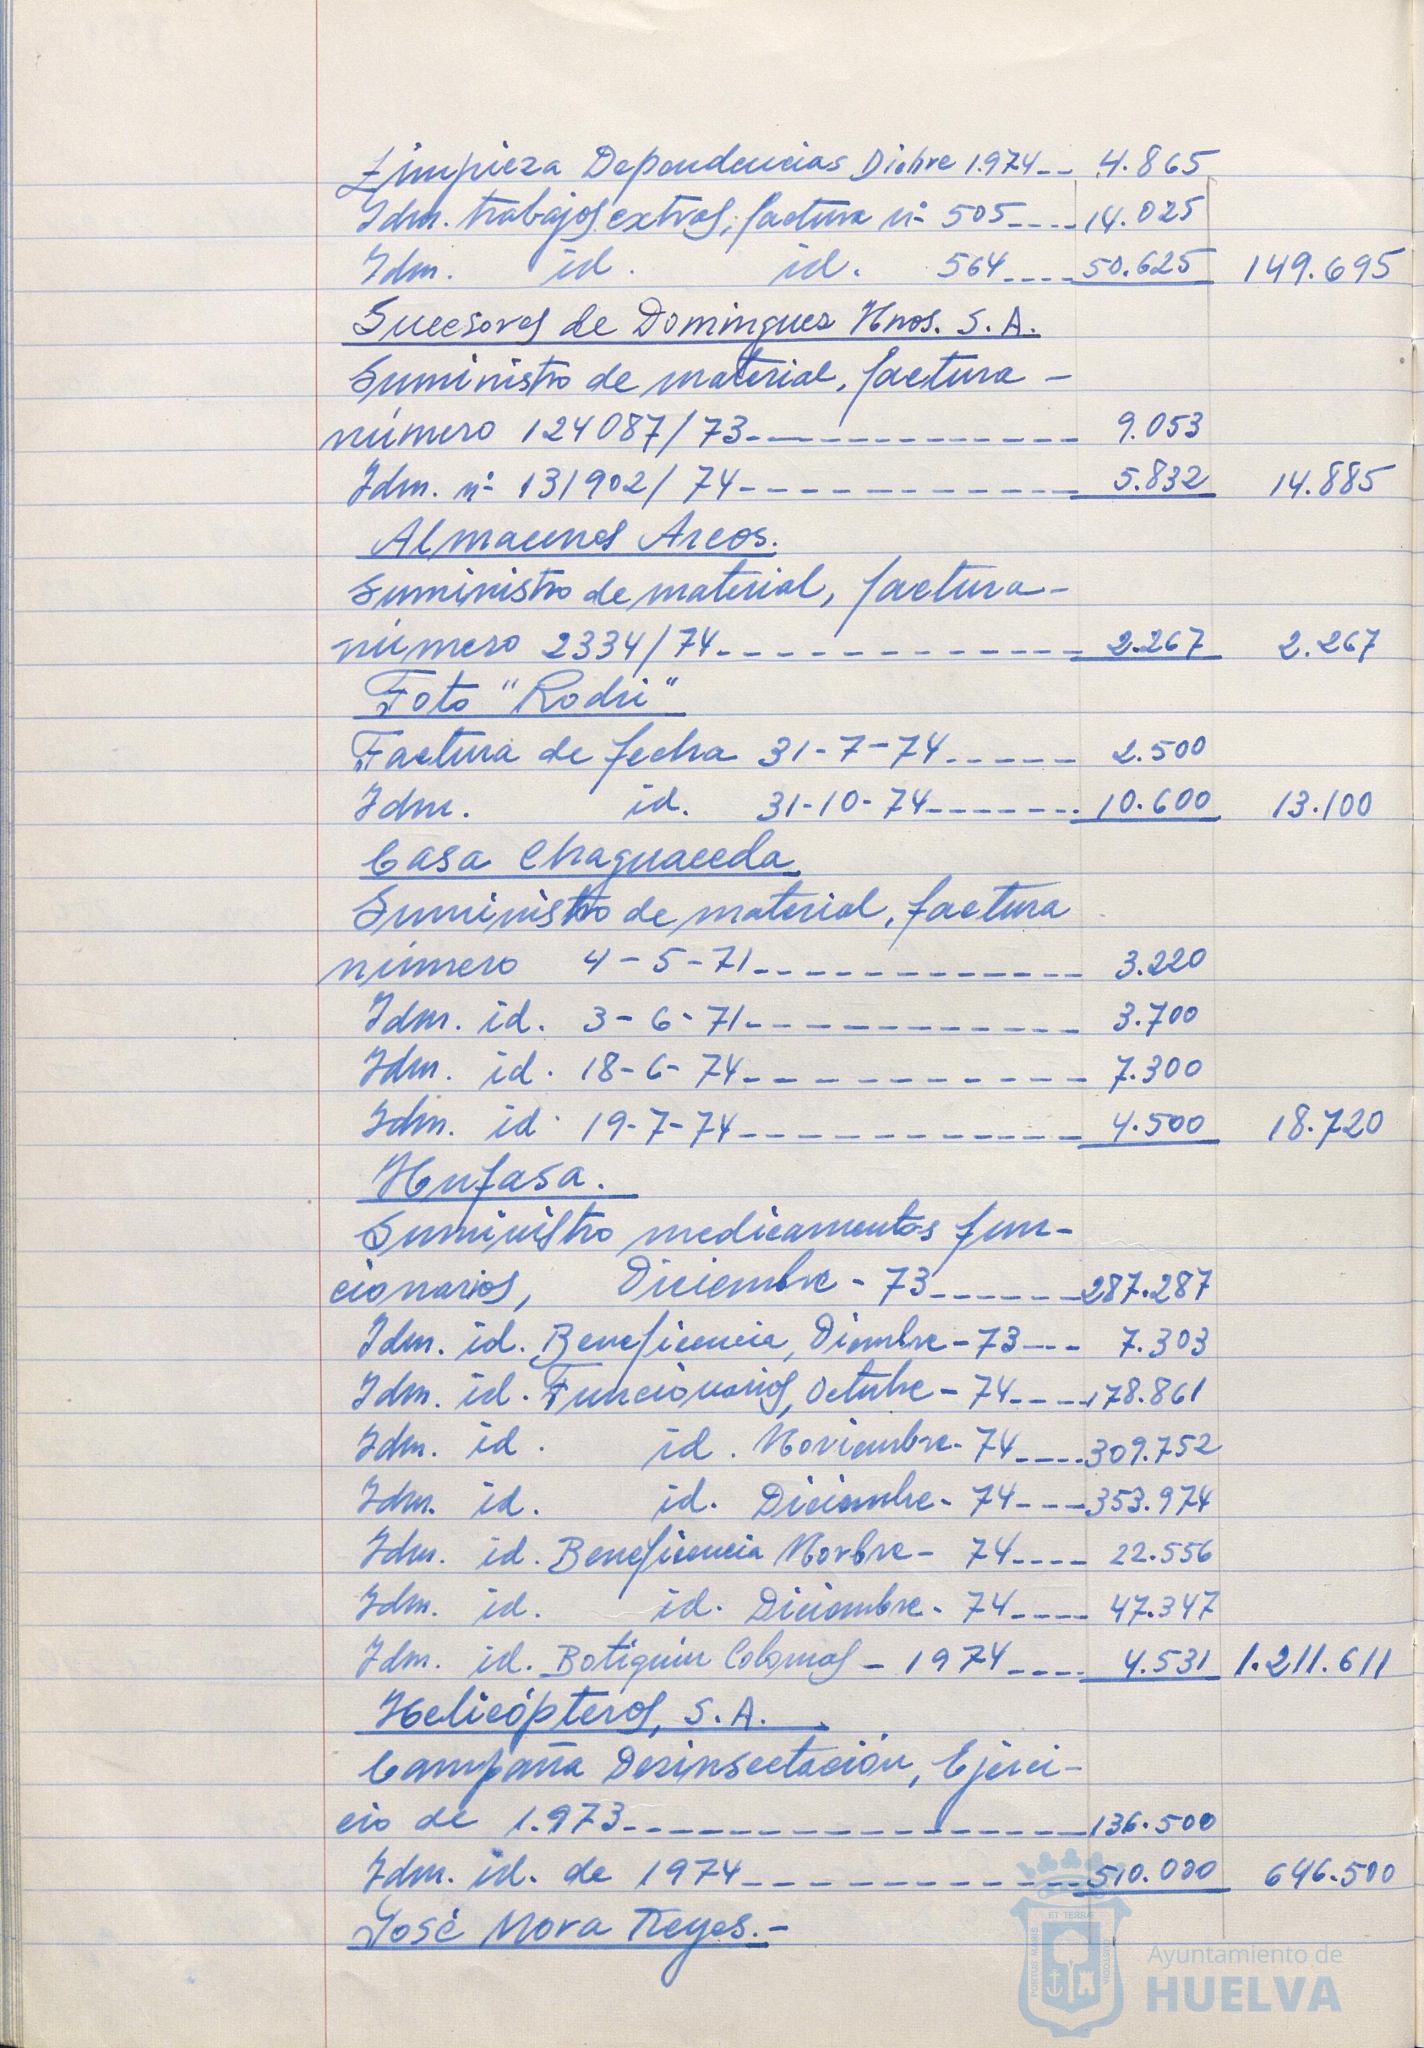 Limpieza Dependencias Dicbre 1.974-- 4.865
Idm. trabajos extras, factura nº 505---- 14.025
Idm. id. id. 564---- 50.625 149.695
Sucesores de Dominguez Hnos. S.A.
Suministro de material, factura -
número 124087/73------------- 9.053
Idm. nº 131902/74------------- 5.832 14.885
Almacenes Arcos.
Suministro de material, factura -
número 2334/74------------- 2.267 2.267
Foto "Rodri"
Factura de fecha 31-7-74----- 2.500
Idm. id. 31-10-74------- 10.600 13.100
Casa Chaguaceda
Suministro de material, factura
número 4-5-71------------- 3.220
Idm. id. 3-6-71------------- 3.700
Idm. id. 18-6-74------------- 7.300
Idm. id. 19-7-74------------- 4.500 18.720
Hufasa.
Suministro medicamentos fun-
cionarios, Diciembre-73------ 287.287
Idm. id. Beneficencia, Dicmbre-73--- 7.303
Idm. id. Funcionarios, Octubre-74---- 178.861
Idm. id. id. Noviembre-74---- 309.752
Idm. id. id. Diciembre-74---- 353.974
Idm. id. Beneficencia Novbre-74---- 22.556
Idm. id. id. Diciembre-74---- 47.347
Idm. id. Botiquin Colonias-1974---- 4.531 1.211.611
Helicópteros, S.A.
Campaña Desinsectación, Ejerci-
cio de 1.973------------------- 136.500
Idm. id. de 1974------------- 510.000 646.500
José Mora Reyes.-
ET TERRAE
PORTUS MARIS
CUSTODIA
Ayuntamiento de
HUELVA